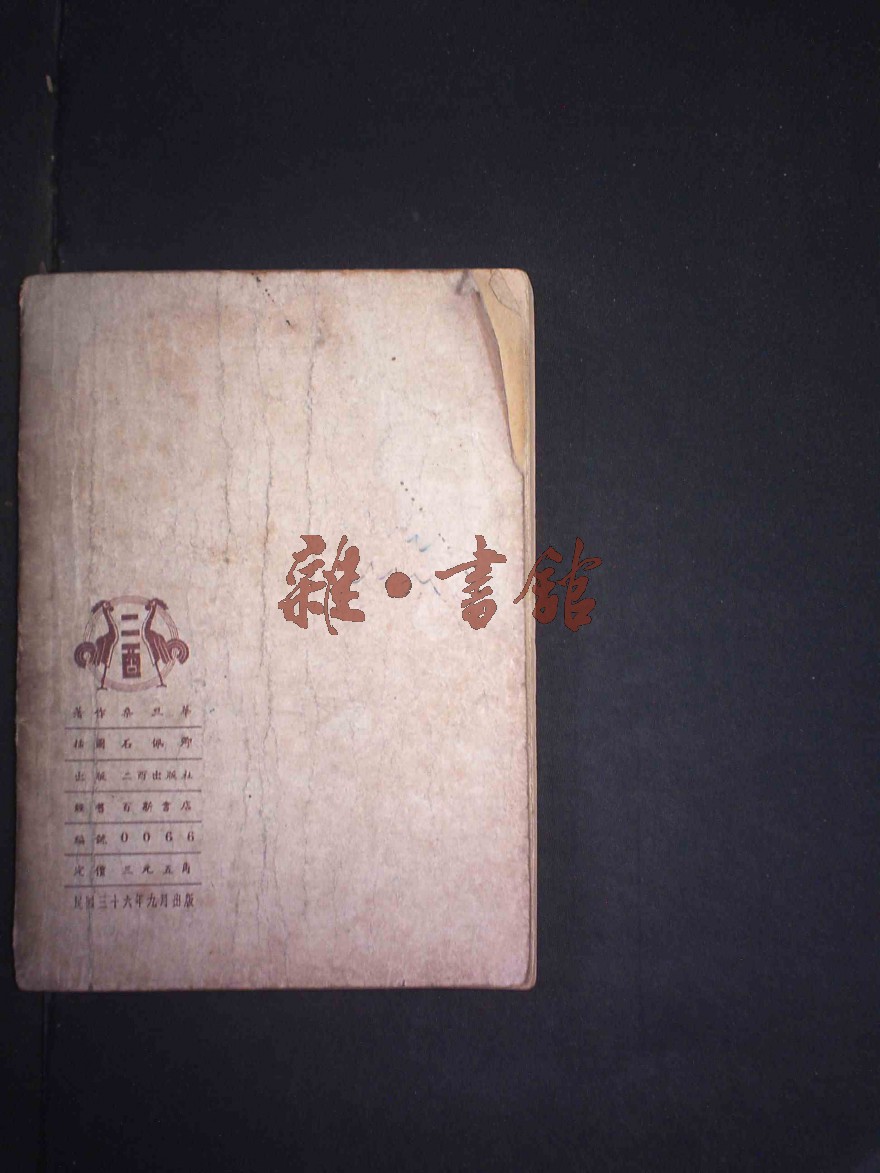 雜·書館
二酉
著作 桑旦華
插圖 石佩卿
出版 二酉出版社
經售 百新書店
編號 0066
定價 三元五角
民國三十六年九月出版